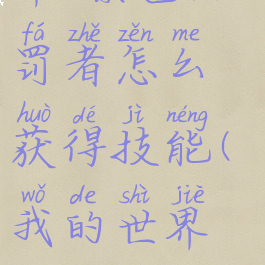 fá zhě zěn me
罚者怎么
huò dé jì néng
获得技能(
wǒ de shì jiè
我的世界